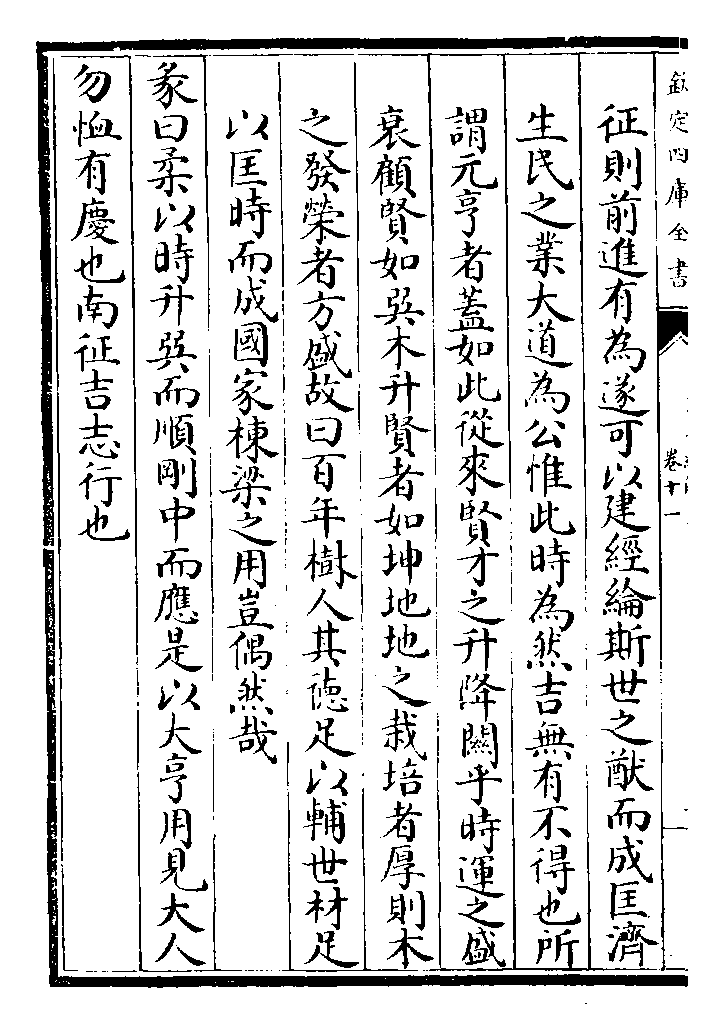 欽定四庫全書
卷十一
征則前進有為遂可以建經綸斯世之猷而成匡濟
生民之業大道為公惟此時為然吉無有不得也所
謂元亨者蓋如此從來賢才之升降關乎時運之盛
衰顧賢如巽木升賢者如坤地地之栽培者厚則木
之發榮者方盛故曰百年樹人其徳足以輔世材足
以匡時而成國家棟梁之用豈偶然哉
彖曰柔以時升巽而順剛中而應是以大亨用見大人
勿恤有慶也南征吉志行也